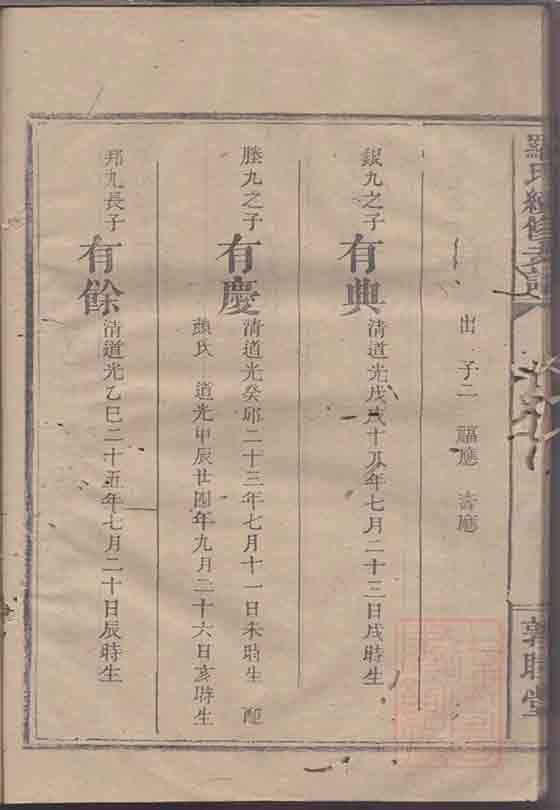 羅氏續修支譜
敦睦堂
出 子二 福應 壽應
銀九之子
有典
清道光戊戌十八年七月二十三日戌時生
勝九之子
有慶
清道光癸卯二十三年七月十一日未時生 配
顏氏 道光甲辰廿四年九月二十六日亥時生
邦九長子
有餘
清道光乙巳二十五年七月二十日辰時生